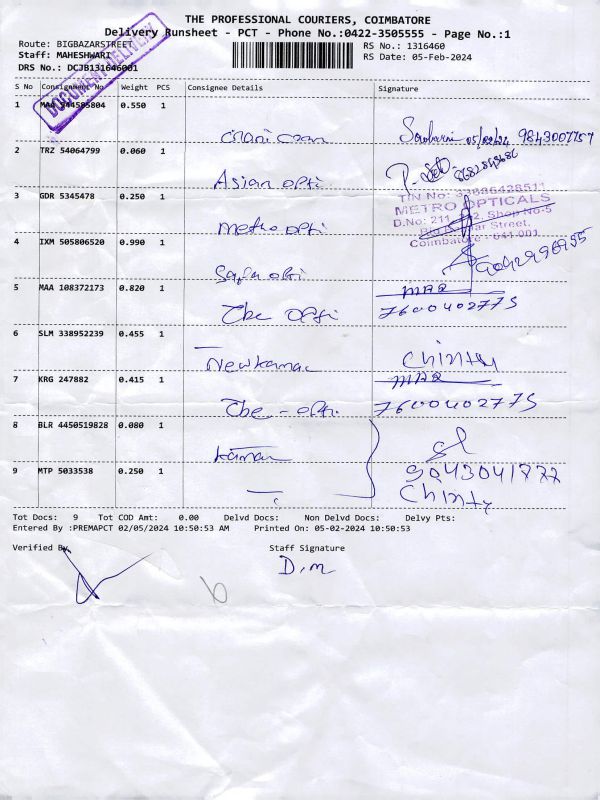 THE PROFESSIONAL COURIERS, COIMBATORE
Delivery Runsheet - PCT - Phone No.:0422-3505555 - Page No.:1
Route: BIGBAZARSTREET
RS No.: 1316460
Staff: MAHESHWARI
RS Date: 05-Feb-2024
DRS No.: DCJB131646001
DOCUMENT DELIVERY
S No Consignment No Weight PCS Consignee Details Signature
1 MAA 344585804 0.550 1
05/02/24 9843007757
2 TRZ 54064799 0.060 1
Asian opti
3 GDR 5345478 0.250 1
TIN No: 33886428511
METRO OPTICALS
D.No: 211 Shop No-5
Street,
Coimbatore - 641 001.
metro opti
4 IXM 505806520 0.990 1
opti
5 MAA 108372173 0.820 1
The opti
7600402775
6 SLM 338952239 0.455 1
Newkamal
Chinty
7 KRG 247882 0.415 1
The - opti
7600402775
8 BLR 4450519828 0.080 1
9 MTP 5033538 0.250 1
Chinty
Tot Docs: 9 Tot COD Amt: 0.00 Delvd Docs: Non Delvd Docs: Delvy Pts:
Entered By :PREMAPCT 02/05/2024 10:50:53 AM Printed On: 05-02-2024 10:50:53
Verified By Staff Signature
D.M